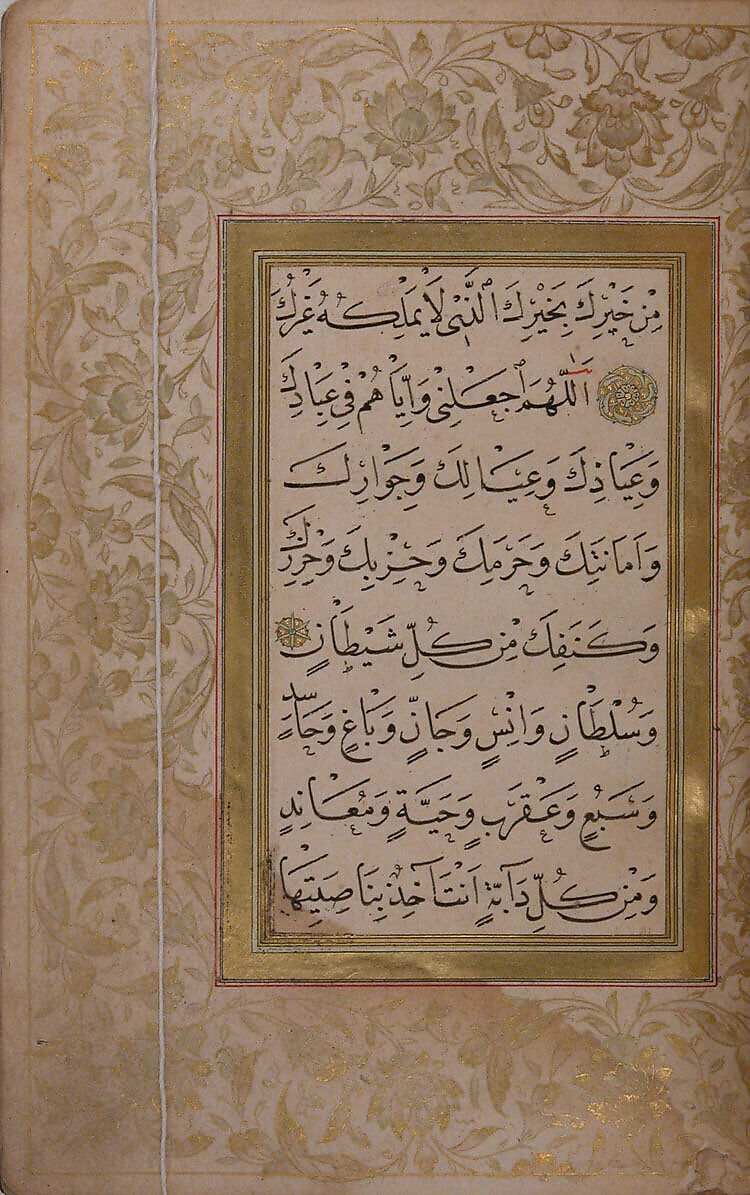 مِنْ خَيْرِكَ بِخَيْرِكَ الَّذِى لَا يَمْلِكُهُ غَيْرُكَ
اَللّٰهُمَّ اجْعَلْنِى وَاِيَّاهُمْ فِى عِبَادِكَ
وَعِيَاذِكَ وَعِيَالِكَ وَجَوَارِكَ
وَاَمَانَتِكَ وَحَرَمِكَ وَحِزْبِكَ وَحِرْزِكَ
وَكَنَفِكَ مِنْ كُلِّ شَيْطَانٍ
وَسُلْطَانٍ وَاِنْسٍ وَجَانٍّ وَبَاغٍ وَحَاسِدٍ
وَسَبُعٍ وَعَقْرَبٍ وَحَيَّةٍ وَمُعَانِدٍ
وَمِنْ كُلِّ دَآبَّةٍ اَنْتَ اٰخِذٌ بِنَاصِيَتِهَا